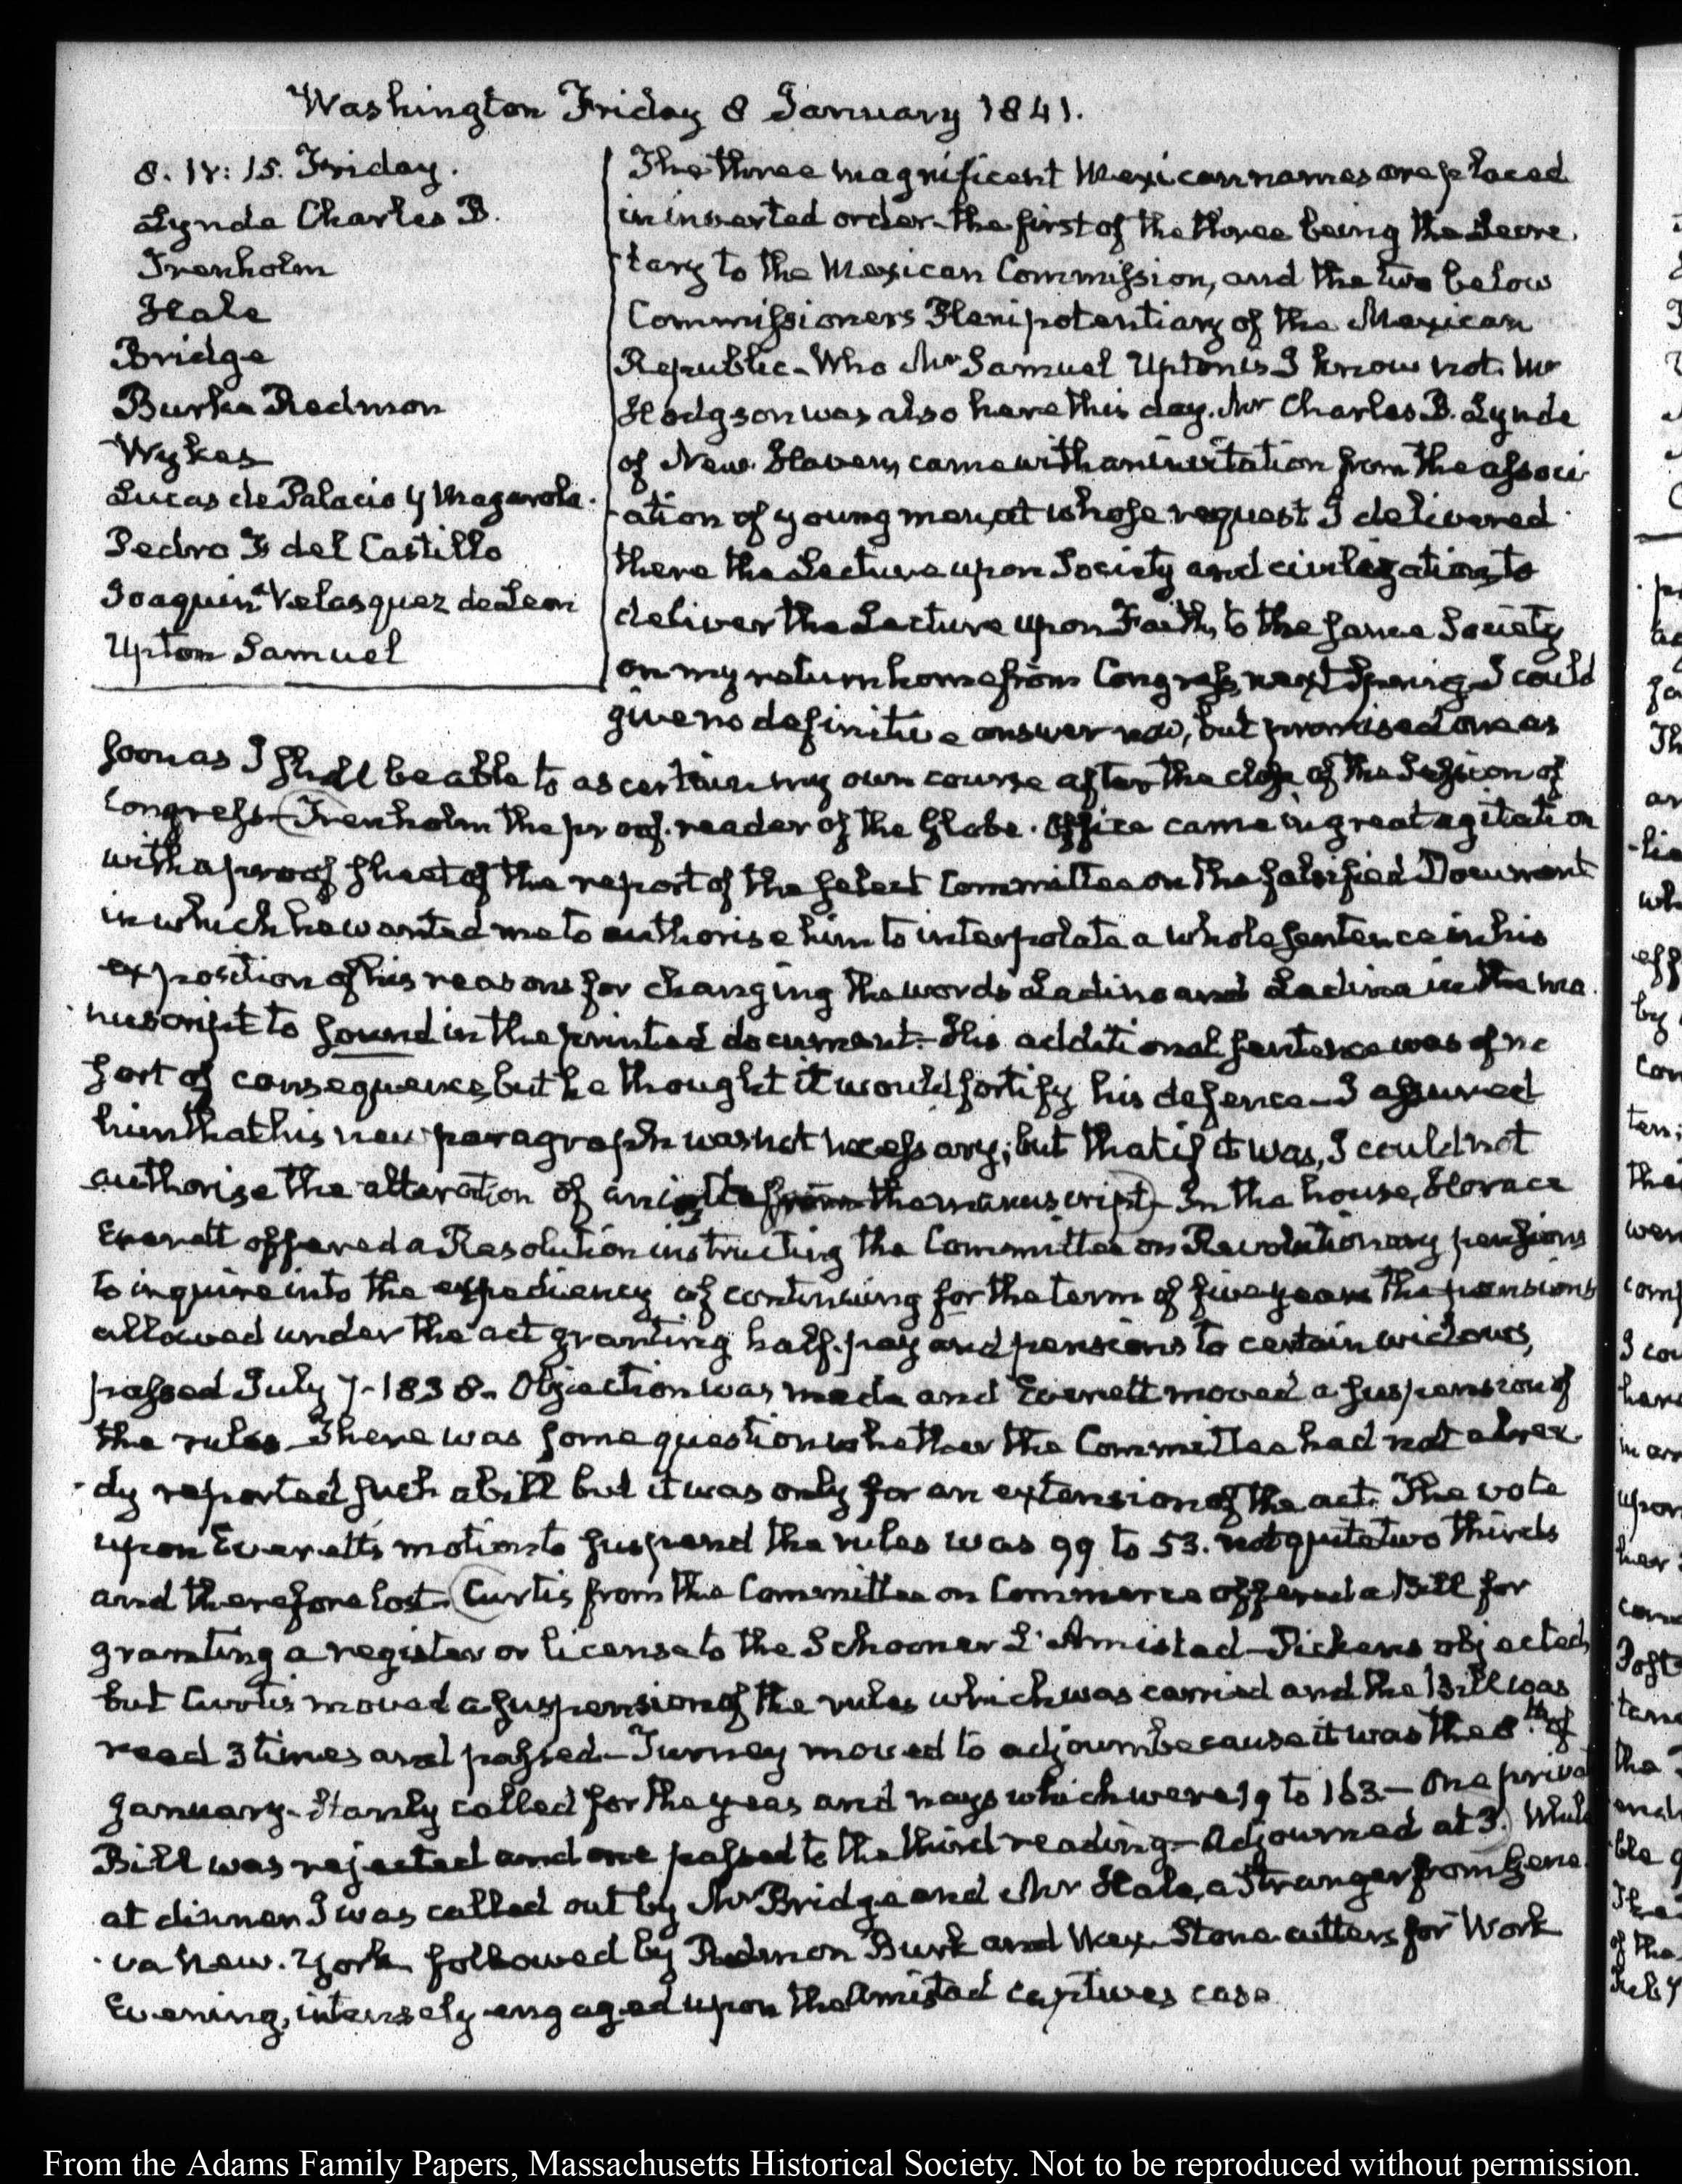 Washington Friday 8 January 1841.
8. IV: 15. Friday.
Lynde Charles B.
Trenholm
Hale
Bridge
Burke Redmon
Wykes
Lucas de Palacio y Magarola.
Pedro F. del Castillo
Joaquin Velasquez de Leon
Upton Samuel
The three magnificent Mexican names are placed
in inverted order - the first of the three being the Secre
tary to the Mexican Commission, and the two below
Commissioners Plenipotentiary of the Mexican
Republic - Who Mr Samuel Upton is I know not. Mr
Hodgson was also here this day. Mr Charles B. Lynde
of New-Haven, came with an invitation from the associ
ation of young men, at whose request I delivered
there the Lecture upon Society and civilization, to
deliver the Lecture upon Faith, to the same Society
on my return home from Congress, next Spring. I could
give no definitive answer now, but promised one as
soon as I shall be able to ascertain my own course after the close of the Session of
Congress - Trenholm the proof-reader of the Globe-Office came in great agitation
with a proof sheet of the report of the select Committee on the falsified Document
in which he wanted me to authorise him to interpolate a whole sentence in his
exposition of his reasons for changing the words Ladino and Ladina in the ma
nuscript to sound in the printed document - His additional sentence was of no
sort of consequence, but he thought it would fortify his defence - I assured
him that his new paragraph was not necessary; but that if it was, I could not
authorise the alteration of an iota from the manuscript - In the house, Horace
Everett offered a Resolution instructing the Committee on Revolutionary pensions
to inquire into the expediency of continuing for the term of five years the pensions
allowed under the act granting half-pay and pensions to certain widows,
passed July 7-1838 - Objection was made and Everett moved a suspension of
the rules - There was some question whether the Committee had not alrea
dy reported such a bill but it was only for an extension of the act. The vote
upon Everett's motion to suspend the rules was 99 to 53. not quite two thirds
and therefore lost - Curtis from the Committee on Commerce offered a Bill for
granting a register or license to the Schooner L'Amistad - Pickens objected
but Curtis moved a suspension of the rules which was carried and the Bill was
read 3 times and passed - Turney moved to adjourn because it was the 8th of
January - Stanly called for the yeas and nays which were 19 to 163 - One privat
Bill was rejected and one passed to the third reading - Adjourned at 3. While
at dinner I was called out by Mr Bridge and Mr Hale, a stranger from Gene
va New-York followed by Redmon Burk and Stone cutters for Work
Evening, intensely engaged upon the Amistad captives case
From the Adams Family Papers, Massachusetts Historical Society. Not to be reproduced without permission.